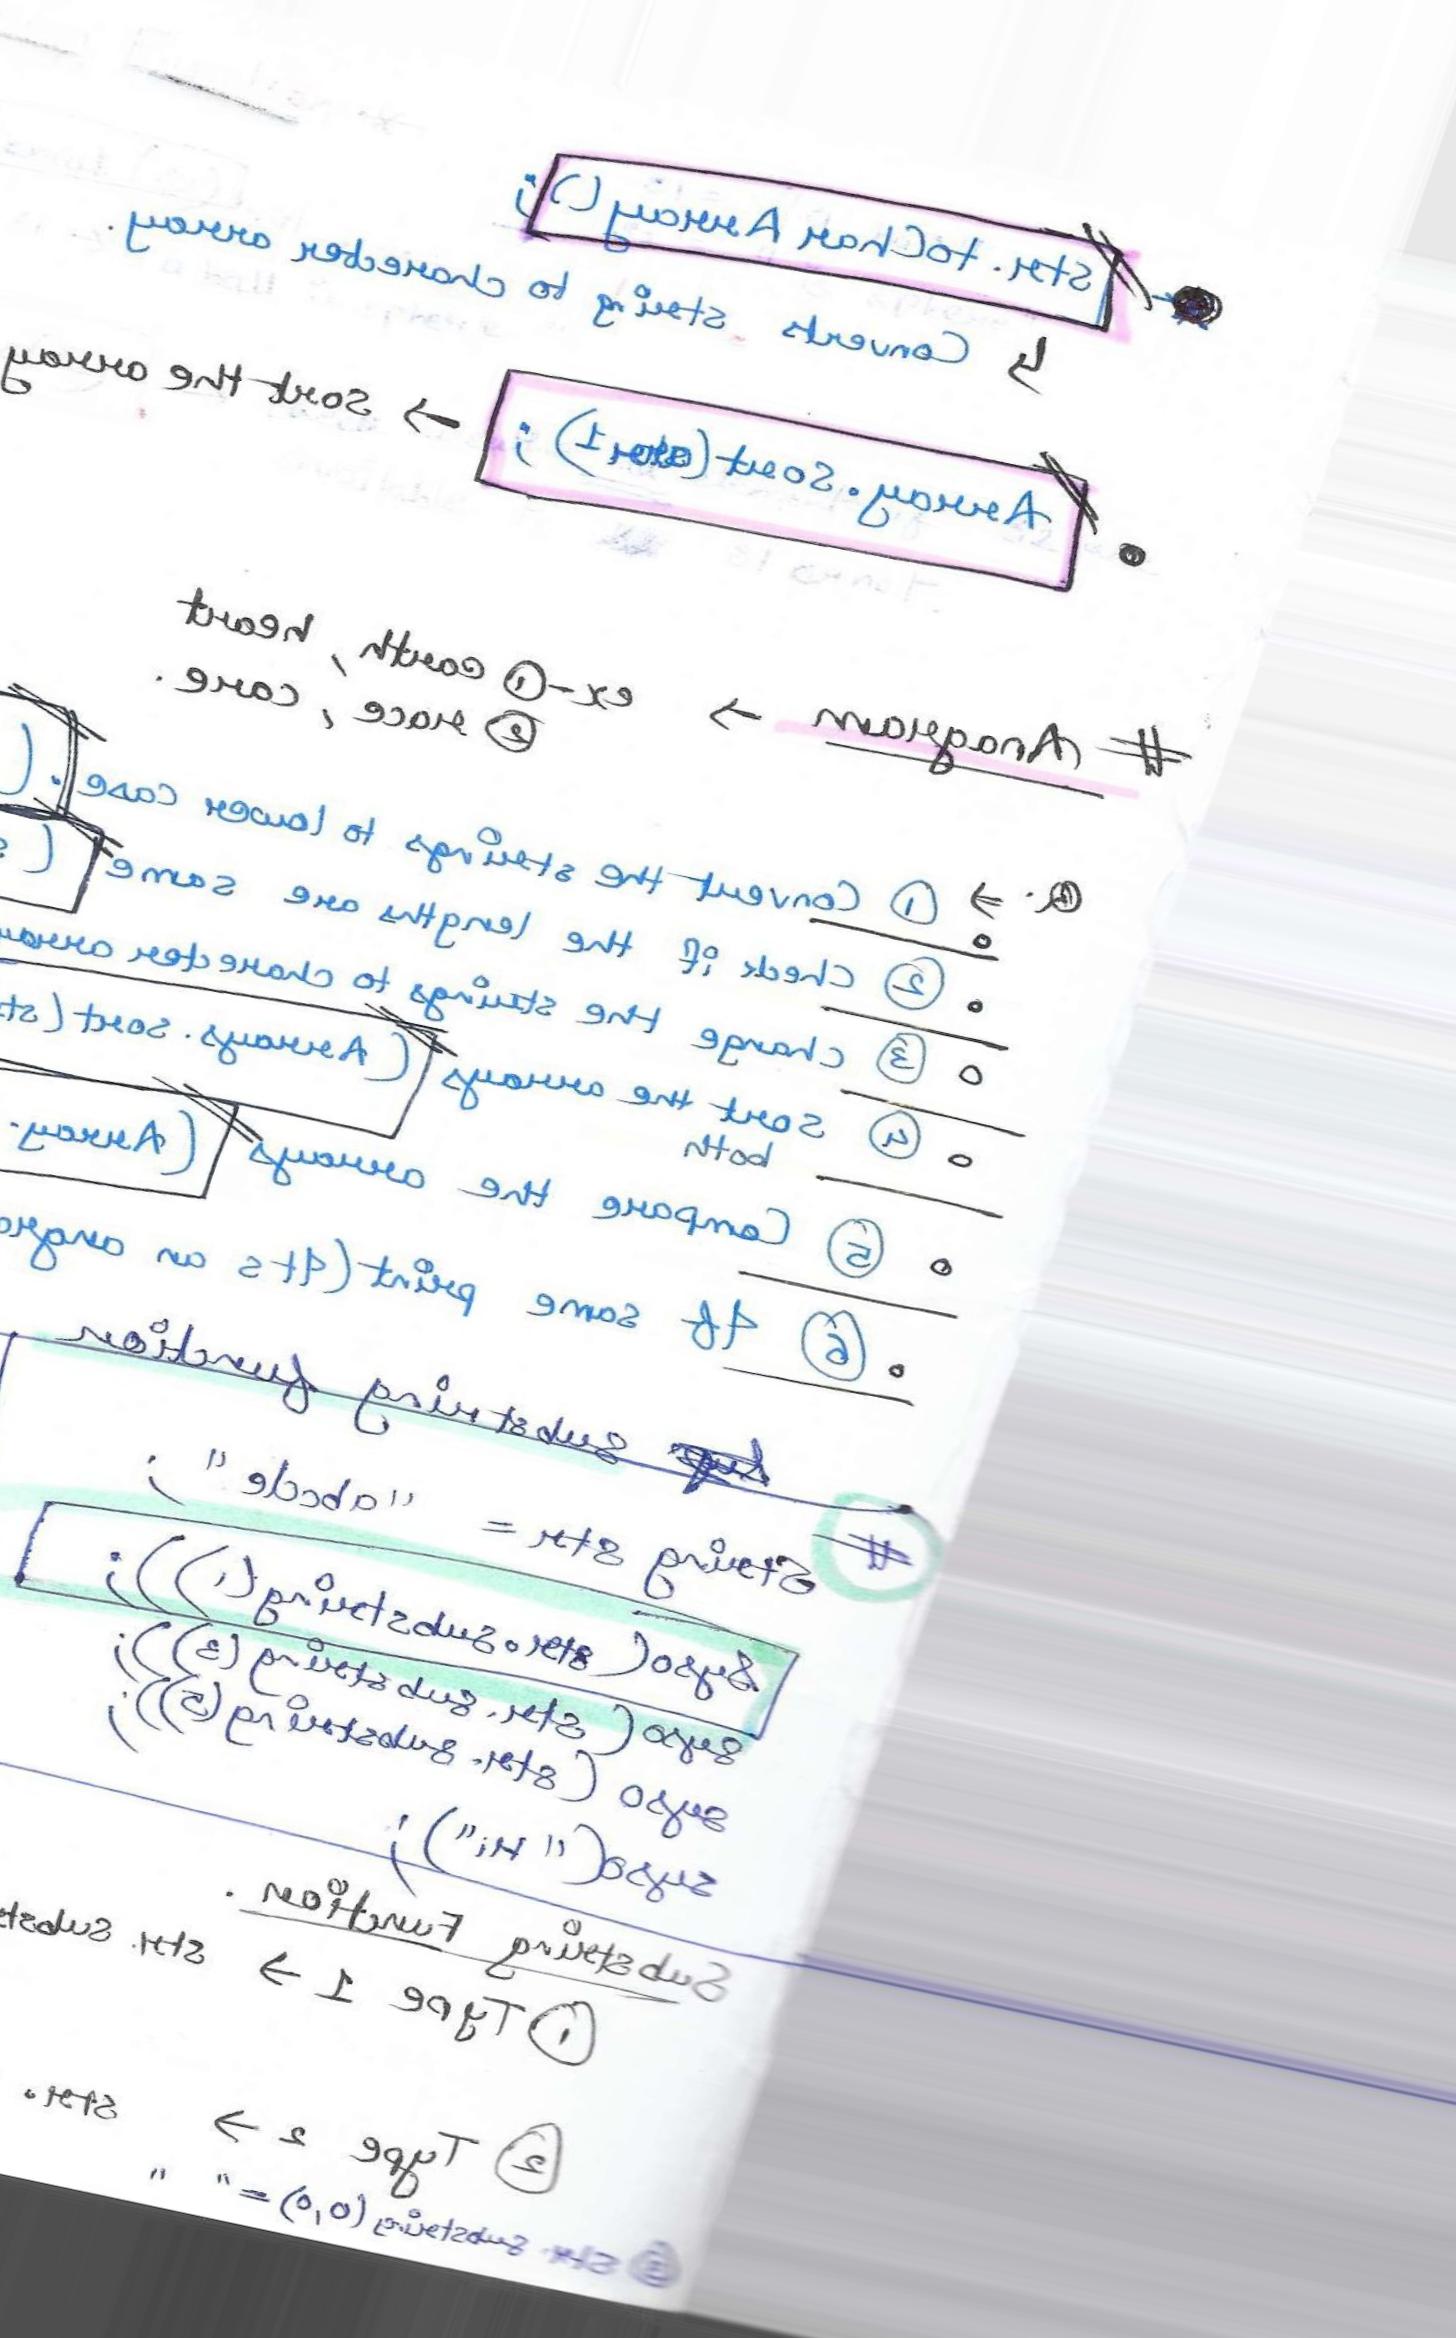 str.toCharArray();
↳ Converts string to charecter array.
Array.Sort(str1); → Sort the array
# Anagram → ex-① earth, heart
② race, care.
Q. → ① Convert the strings to lower case. (
② check if the lengths are same (s
③ change the strings to charecter array
④ Sort the arrays (Arrays.sort(st
both
⑤ Compare the arrays (Array.
⑥ If same print (Its an angra
Substring function
# String str = "abcde";
Syso(str.substring(1));
syso(str.substring(3));
syso(str.substring(5));
syso("Hi");
Substring Function.
① Type 1 → str.Subst
② Type 2 → str.
③ str.substring(0,0) = " "